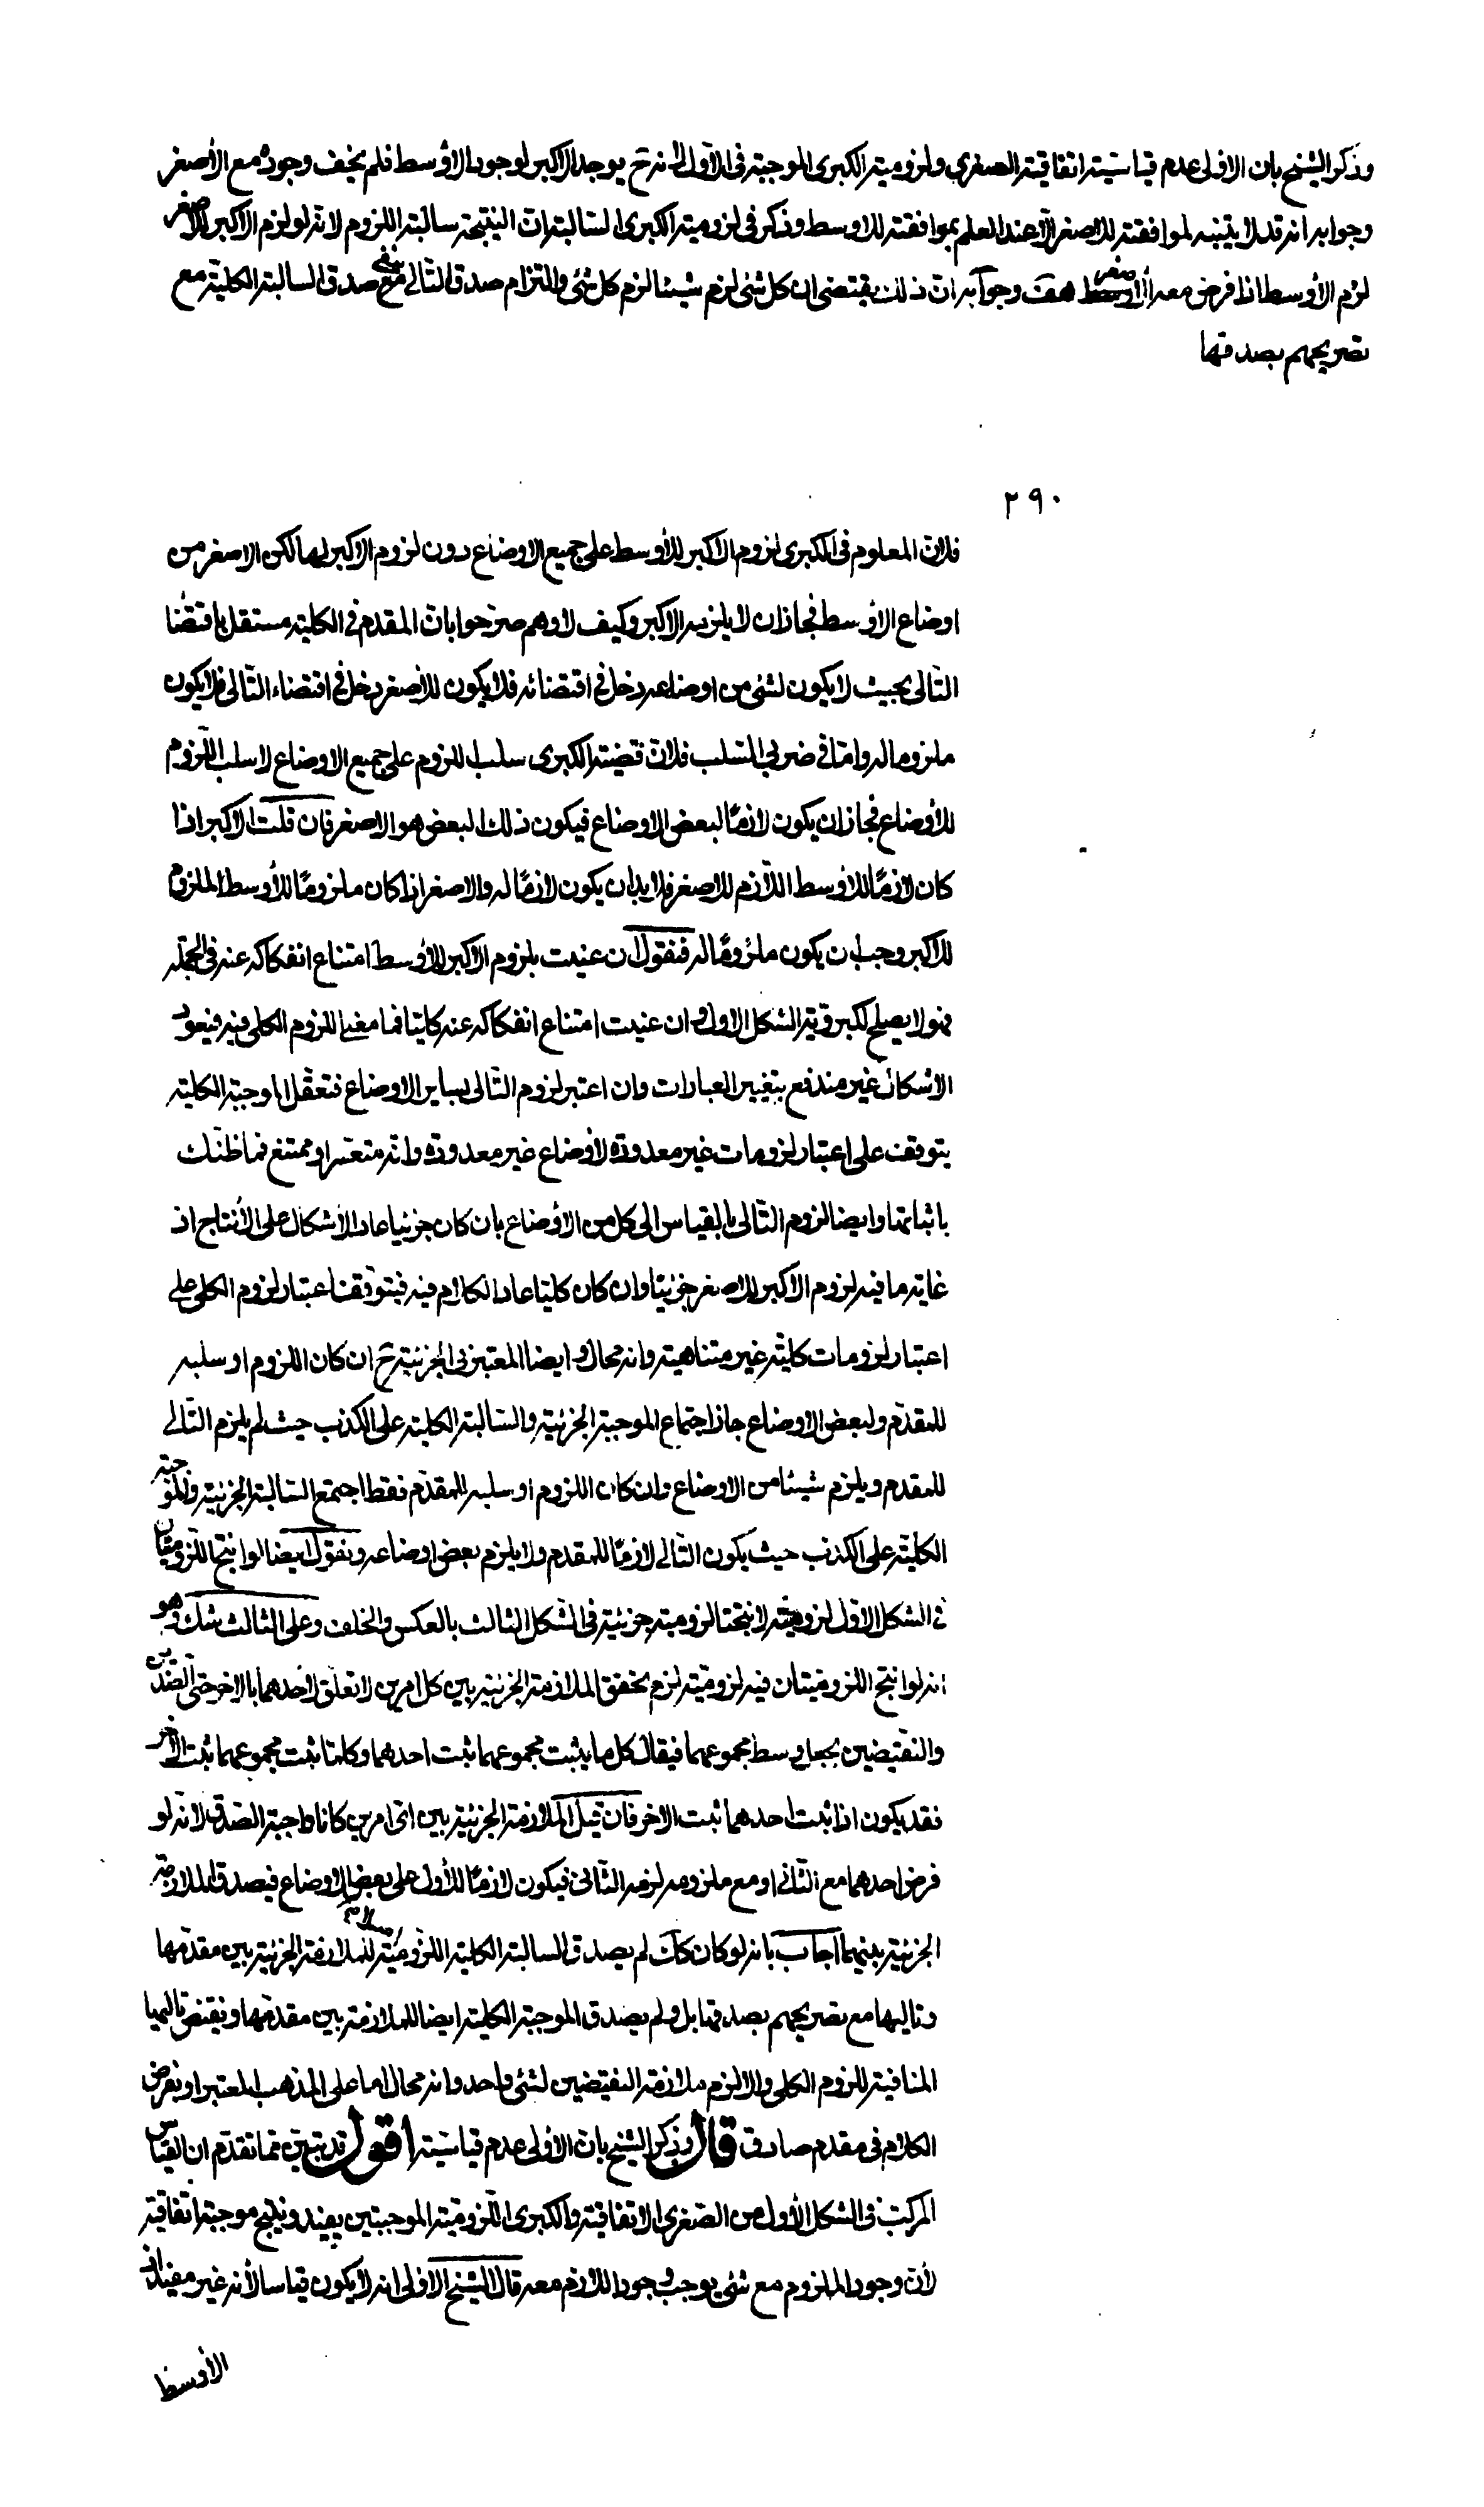 وذكر الشيخ بان الاولى عدم قياسية اتفاقية الصغرى ولزومية الكبرى الموجبة في الاول لانه ح يوجد الاكبر لوجود الاوسط فلم يخف وجوده مع الاصغر
وجوابه انه قد لا يتنبه لموافقته للاصغر الا عند العلم بموافقته للاوسط وذكر في لزومية الكبرى السالبة ان النتيجة سالبة اللزوم لانه لو لزم الاكبر للاصغر
لزم الاوسط اذا فرض معه الاصغر هف وجوابه ان ذلك يقتضى ان كل شئ لزم شيئا لزم كل شئ والتزام صدق التالي ينفي صدق السالبة الكلية مع
تصريحهم بصدقها
٢٩٠
فلان المعلوم في الكبرى لزوم الاكبر للاوسط على جميع الاوضاع دون لزوم الاكبر لها لكن الاصغر من
اوضاع الاوسط فجاز ان لا يلزمه الاكبر وكيف لا وهم صرحوا بان المقدم في الكلية مستقل باقتضا
التالى بحيث لا يكون لشئ من اوضاعه دخل في اقتضائه فلا يكون للاصغر دخل في اقتضاء التالى فلا يكون
ملزوما له واما في ضربى السلب فلان قضية الكبرى سلب اللزوم على جميع الاوضاع لا سلب اللزوم
للاوضاع فجاز ان يكون لازما لبعض الاوضاع فيكون ذلك البعض هو الاصغر فان قلت الاكبر اذا
كان لازما للاوسط اللازم للاصغر فلا بد ان يكون لازما له والاصغر اذا كان ملزوما للاوسط الملزوم
للاكبر وجب ان يكون ملزوما له فنقول ان عنيت بلزوم الاكبر للاوسط امتناع انفكاكه عنه في الجملة
فهو لا يصلح لكبروية الشكل الاول وان عنيت امتناع انفكاكه عنه كليا فما معنى اللزوم الكلى فيه فيعود
الاشكال غير مندفع بتغيير العبارات وان اعتبر لزوم التالى لساير الاوضاع فتعقل الموجبة الكلية
يتوقف على اعتبار لزومات غير معدودة لاوضاع غير معدودة وانه متعسر او ممتنع فما ظنك
باثباتها وايضا لزوم التالى بالقياس الى كل من الاوضاع بان كان جزئيا عاد الاشكال على الانتاج اذ
غاية ما فيه لزوم الاكبر للاصغر جزئيا وان كان كليا عاد الكلام فيه فيتوقف اعتبار لزوم الكلى على
اعتبار لزومات كلية غير متناهية وانه محال وايضا المعتبر في الجزئية ح ان كان اللزوم او سلبه
للمقدم ولبعض الاوضاع جاز اجتماع الموجبة الجزئية والسالبة الكلية على الكذب حيث لم يلزم التالى
للمقدم ويلزم شيئا من الاوضاع وان كان اللزوم او سلبه للمقدم فقط اجتمع السالبة الجزئية والموجبة
الكلية على الكذب حيث يكون التالى لازما للمقدم ولا يلزم بعض اوضاعه ونقول ايضا لو انتج اللزوميتان
في الشكل الاول لزومية لانتجتا لزومية جزئية في الشكل الثالث بالعكس والخلف وعلى الثالث شك وهو
انه لو انتج اللزوميتان فيه لزومية لزم تحقق الملازمة الجزئية بين كل امرين لا تعلق لاحدهما بالاخر حتى الضدين
والنقيضين بجعل وسط مجموعهما فيقال كلما يثبت مجموعهما ثبت احدهما وكلما ثبت مجموعهما ثبت الاخر
فقد يكون اذا ثبت احدهما ثبت الاخر فان قيل الملازمة الجزئية بين اى امرين كانا واجبة الصدق لانه لو
فرض احدهما مع الثانى او مع ملزومه لزمه الثانى فيكون لازما للاول على بعض الاوضاع فيصدق الملازمة
الجزئية بينهما اجاب بانه لو كان كك لم يصدق السالبة الكلية اللزومية للملازمة الجزئية بين مقدمها
وتاليها مع تصريحهم بصدقها بل ولم يصدق الموجبة الكلية ايضا للملازمة بين مقدمها ونقيض تاليها
المنافية للزوم الكلى والا لزم ملازمة النقيضين لشئ واحد وانه محال اما على المذهب المعتبر او نفرض
الكلام في مقدم صادق قال وذكر الشيخ بان الاولى عدم قياسية اقول قد تبين مما تقدم ان القياس
المركب في الشكل الاول من الصغرى الاتفاقية والكبرى اللزومية الموجبتين يفيد وينتج موجبة اتفاقية
لان وجود الملزوم مع شئ يوجب وجود اللازم معه قال الشيخ الاولى انه لا يكون قياسا لانه غير مفيد لان
الاوسط